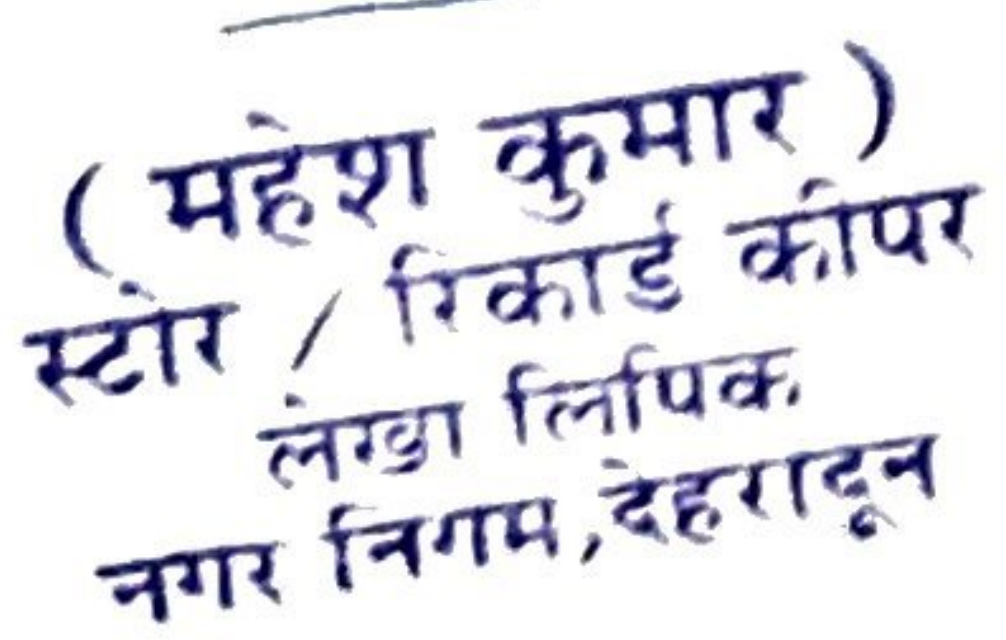 ( महेश कुमार )
स्टोर / रिकार्ड कीपर
लेखा लिपिक
नगर निगम, देहरादून